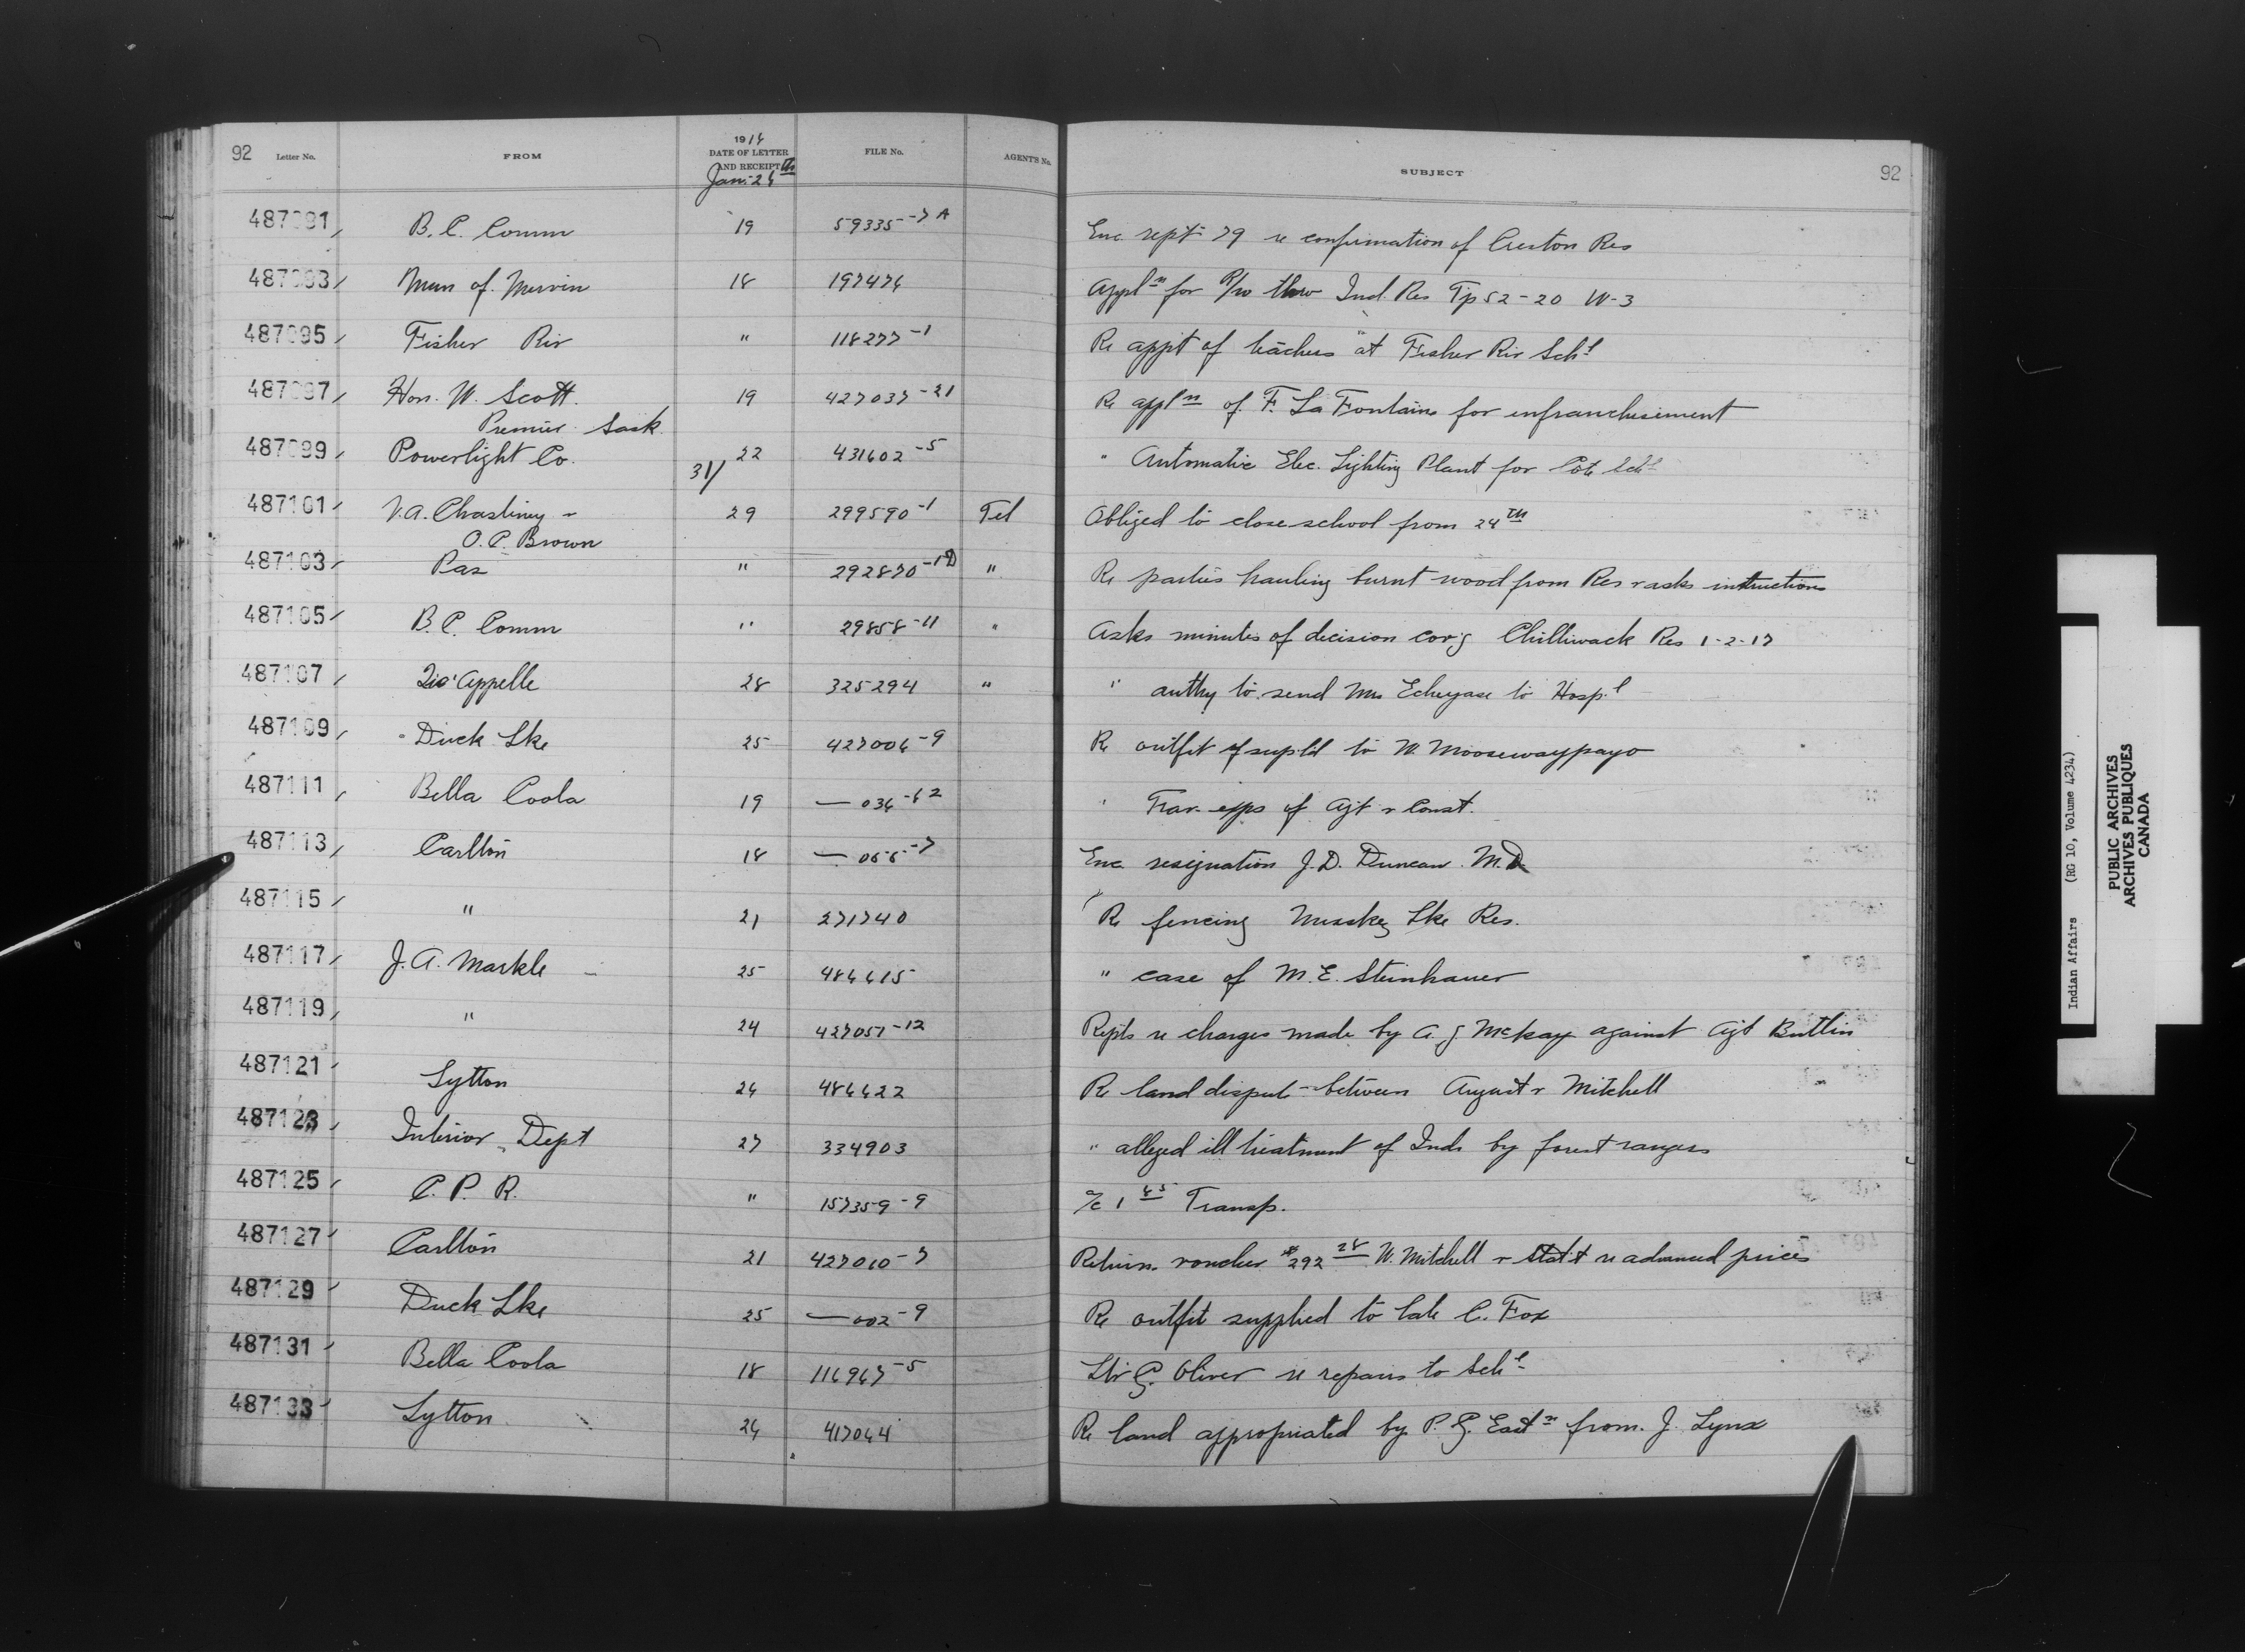 92 Letter No. FROM 1914 DATE OF LETTER AND RECEIPT FILE No. AGENT'S No. SUBJECT 92
Jan. 2
487091 B. C. Comm 19 59335-7A Enc. rept 79 re confirmation of Creston Res
487093 Mun of Mervin 18 Appln for R/W thro Ind. Res Tp 52-20 W-3
487095 Fisher Riv " 118277-1 Re appt of teachers at Fisher Riv Schl
487097 Hon. W. Scott. 19 427037-21 Re appln of F. La Fontaine for enfranchisement
Premier Sask
487099 Powerlight Co. 31/ 22 431602-5 " Automatic Elec. Lighting Plant for Cote Schl
487101 29 299590-1 Tel Obliged to close school from 24th
O. P. Brown
487103 Pas " 292870 " Re parties hauling burnt wood from Res r asks instructions
487105 B. C. Comm " 29858-11 " Asks minutes of decision cov'g Chilliwack Res 1-2-17
487107 Qu'Appelle 28 325294 " " authy to send Mrs to Hosp.l
487109 Duck Lke 25 427006-9 Re outfit supld to W. Moosewaypayo
487111 Bella Coola 19 — 036-62 " Trav. exps of Agt r Const.
487113 Carlton 18 — Enc resignation J. D. Duncan. M.D.
487115 " 21 271740 Re fencing Lke Res.
487117 J. A. Markle 25 " case of M. E. Steinhauer
487119 " 24 427057-12 Repts re charges made by A. J. McKay against Agt Butlin
487121 Lytton 24 Re land dispute between August r Mitchell
487123 Interior Dept 27 334903 " alleged ill treatment of Inds by forest rangers
487125 C. P. R. " 157359-9 a/c 1 Transp.
487127 Carlton 21 427010-7 Return voucher #292 28 W. Mitchell r stat't re advanced prices
487129 Duck Lke 25 — 002-9 Re outfit supplied to late C. Fox
487131 Bella Coola 18 116967-5 Ltr G. Oliver re repairs to Schl
487133 Lytton 24 Re land appropriated by P. G. Eastn from J. Lynx
Indian Affairs (RG 10, Volume 4234)
PUBLIC ARCHIVES
ARCHIVES PUBLIQUES
CANADA